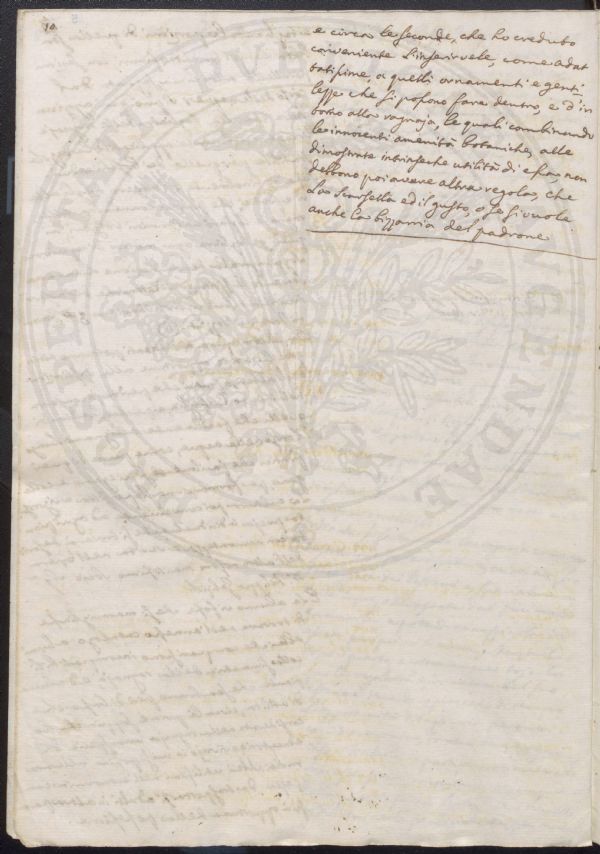 10
e circa le seconde, che ho creduto
conveniente l'inserirvele, come adat
tatissime, a quelli ornamenti e genti=
lezze che si possono fare dentro, e d'in
torno alla ragnaja, le quali combinando
le innocenti amenità botaniche, alle
dimostrate intrinseche utilità di essa, non
debbono poi avere altra regola, che
La Scarsella ed il gusto, o se si vuole
anche la bizzarria del padrone
PROSPERITATI PUBLICAE AUGENDAE